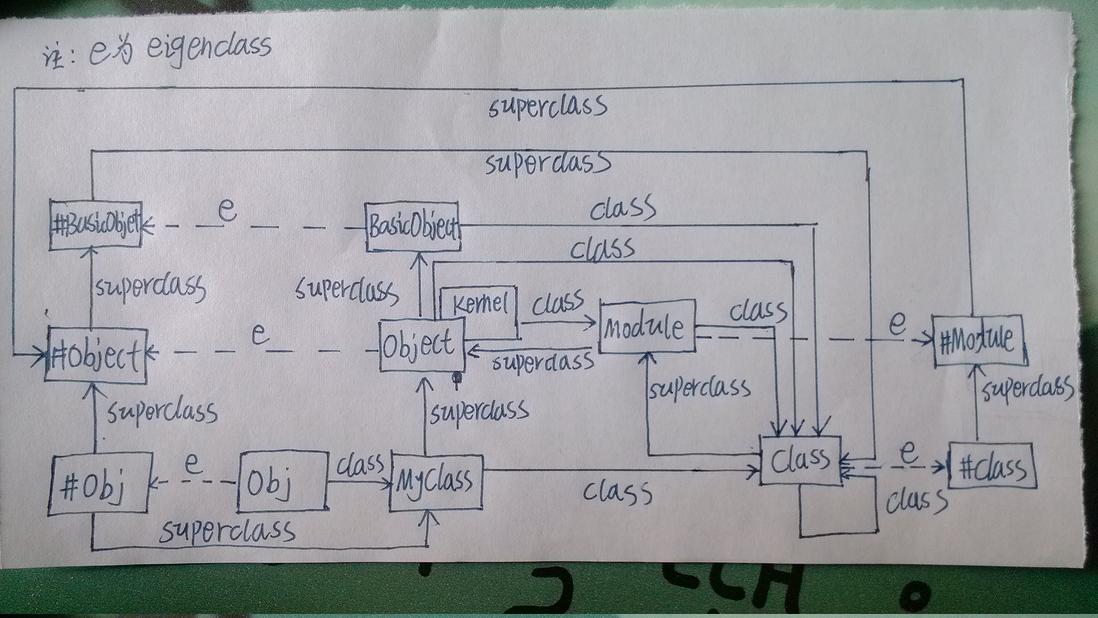 注: e为 eigenclass
superclass
superclass
##BasicObjet
e
BasicObject
class
class
superclass
superclass
Kernel
class
Module
class
e
#Module
#Object
e
Object
superclass
superclass
superclass
superclass
superclass
#Obj
e
Obj
class
MyClass
class
Class
e
#class
class
superclass